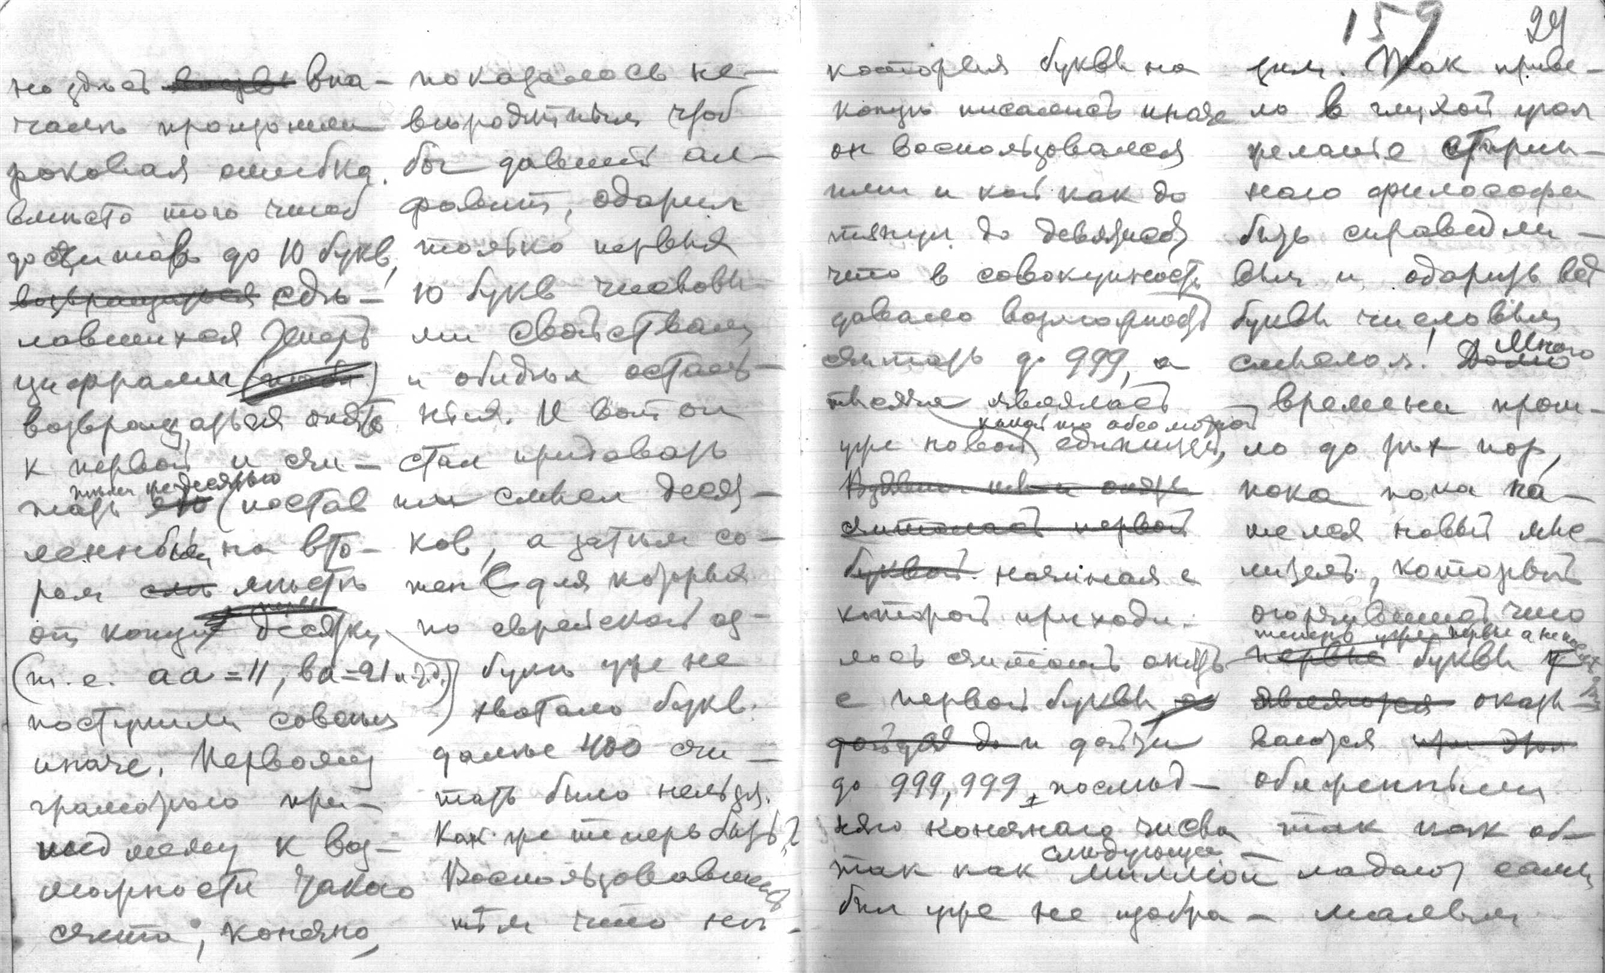 159
24
но здѣсь впа-
чалѣ произошла
роковая ошибка.
вмѣсто того чтоб
досчитавъ до 10 букв,
возвращаться сдѣ-
лавшихся теперь
цифрами
возвращаться опять
к первой и счи-
тать
(поставленн
ленной на вто-
ром мѣстѣ
десятку
(т.е. аа=11, ва=21 и т.д.)
поступили совсѣм
иначе. Первому
грамотѣю при-
шедшему к воз-
можности такого
счета, конечно,
показалось не-
выродятным чтоб
бы давший ал-
фавит, одарил
только первыя
10 букв числовы-
ми свойствами
и обидѣл осталь-
ныя. И вот он
стал придавать
им смысл десят-
ков, а затѣм со-
тен для которых
по еврейской аз-
буки уже не
хватало букв.
далѣе 400 счи-
тать было нельзя.
Как же теперь быть?
Воспользовавшись
тѣм что нѣ-
которыя буквы на
концѣ писались иначе
он воспользовался
ими и кой как до
тянул до девятисот
что в совокупности
давало возможность
считать до 999, а
тысяча являлась
какой то абсолютной
уже новой единицей,
считалась первой
буквой. начиная с
которой приходи-
лось считать опять
с первой буквы
и дойти
до 999,999 послѣд-
няго конечнаго числа
так как слѣдующее миллион
был уже не изобра-
зим. Так приве-
ло в глухой угол
желание старин-
наго философа
быть справедли-
вым и одарить всѣ
буквы числовым
смыслом! Много
времени прош-
ло до тѣх пор,
пока пока на-
шелся новый мы-
слитель, который
что
теперь уже первые а не
буквы
оказы-
ваются
обиженными
так как об-
ладают самы
малым